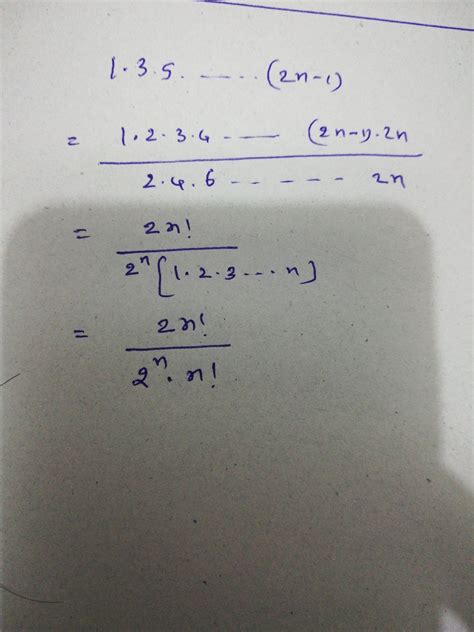 1.3.5. ------ (2n-1)
= 1.2.3.4 ------ (2n-1).2n
2.4.6 ------ 2n
= 2n!
2^n [1.2.3---n]
= 2n!
2^n . n!